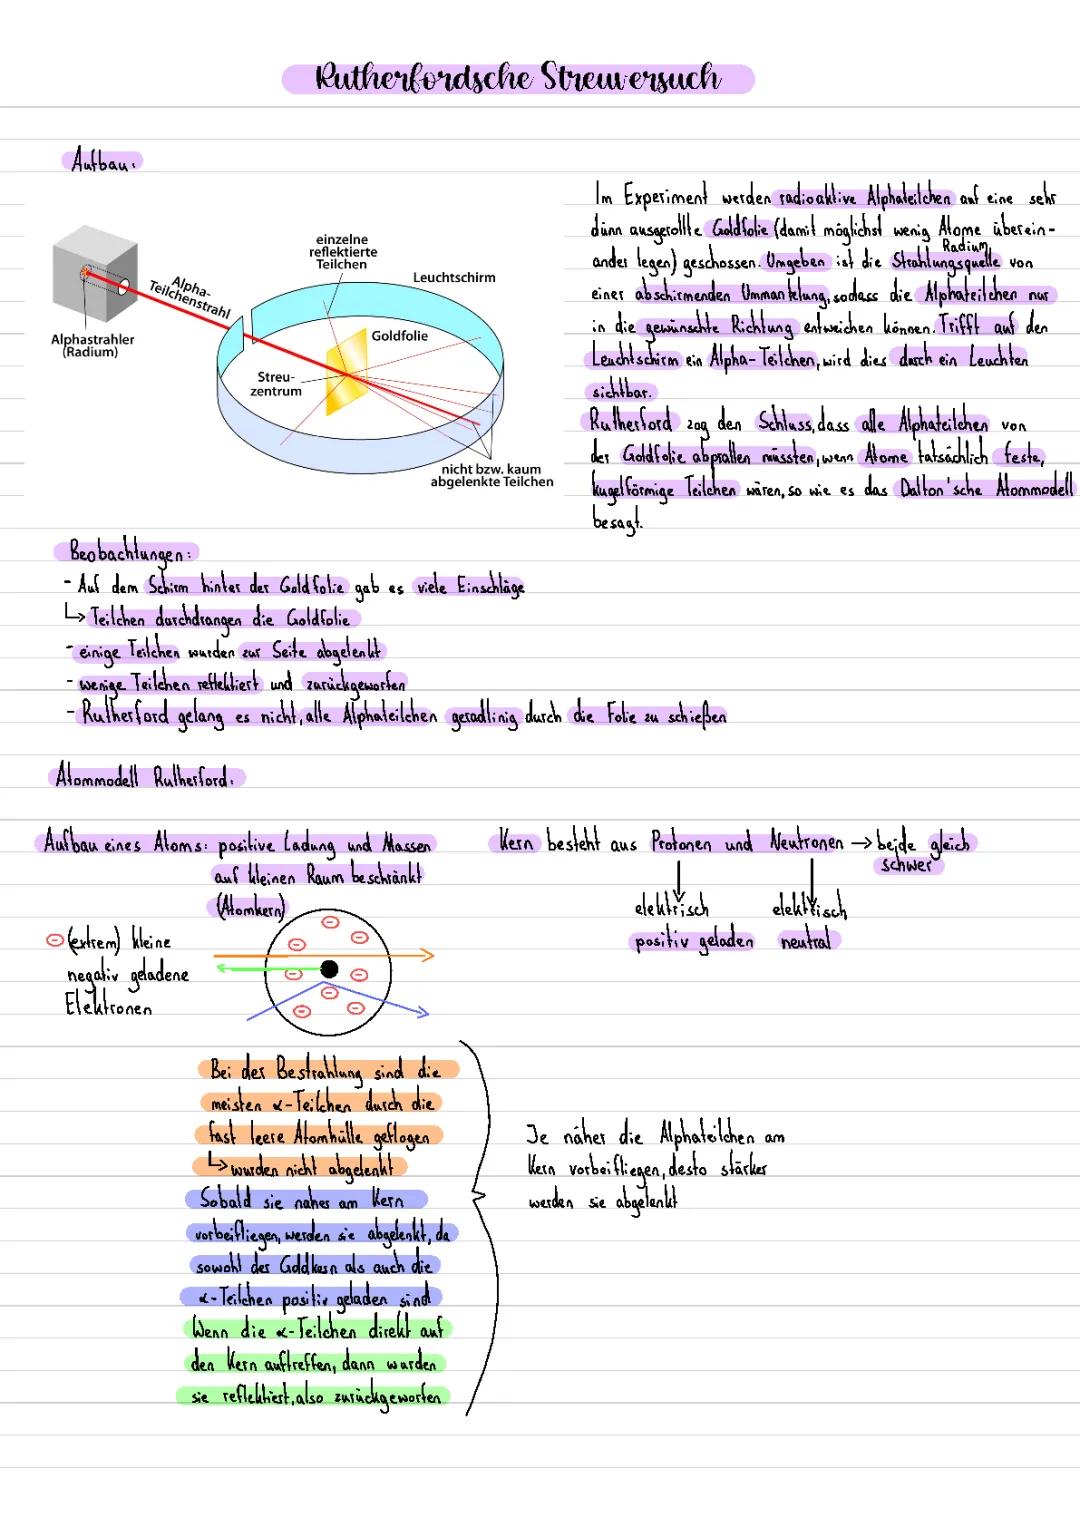 Rutherfordsche Streuversuch
Aufbau:
einzelne
reflektierte
Teilchen
Leuchtschirm
Alpha-
Teilchenstrahl
Goldfolie
Alphastrahler
(Radium)
Streu-
zentrum
nicht bzw. kaum
abgelenkte Teilchen
Im Experiment werden radioaktive Alphateilchen auf eine sehr
dünn ausgerollte Goldfolie (damit möglichst wenig Atome überein-
ander legen) geschossen. Umgeben ist die Strahlungsquelle von
Radium
einer abschirmenden Ummantelung, sodass die Alphateilchen nur
in die gewünschte Richtung entweichen können. Trifft auf den
Leuchtschirm ein Alpha-Teilchen, wird dies durch ein Leuchten
sichtbar.
Rutherford zog den Schluss, dass alle Alphateilchen von
der Goldfolie abprallen müssten, wenn Atome tatsächlich feste,
kugelförmige Teilchen wären, so wie es das Dalton'sche Atommodell
besagt.
Beobachtungen:
- Auf dem Schirm hinter der Goldfolie gab es viele Einschläge
↳ Teilchen durchdrangen die Goldfolie
- einige Teilchen wurden zur Seite abgelenkt
- wenige Teilchen reflektiert und zurückgeworfen
- Rutherford gelang es nicht, alle Alphateilchen geradlinig durch die Folie zu schießen
Atommodell Rutherford:
Aufbau eines Atoms: positive Ladung und Massen
auf kleinen Raum beschränkt
(Atomkern)
⊖ (extrem) kleine
negativ geladene
Elektronen
Kern besteht aus Protonen und Neutronen → beide gleich
schwer
elektrisch elektrisch
positiv geladen neutral
Bei der Bestrahlung sind die
meisten α-Teilchen durch die
fast leere Atomhülle geflogen
↳ wurden nicht abgelenkt
Sobald sie naher am Kern
vorbeifliegen, werden sie abgelenkt, da
sowohl der Goldkern als auch die
α-Teilchen positiv geladen sind
Wenn die α-Teilchen direkt auf
den Kern auftreffen, dann wurden
sie reflektiert, also zurückgeworfen
Je näher die Alphateilchen am
Kern vorbeifliegen, desto stärker
werden sie abgelenkt